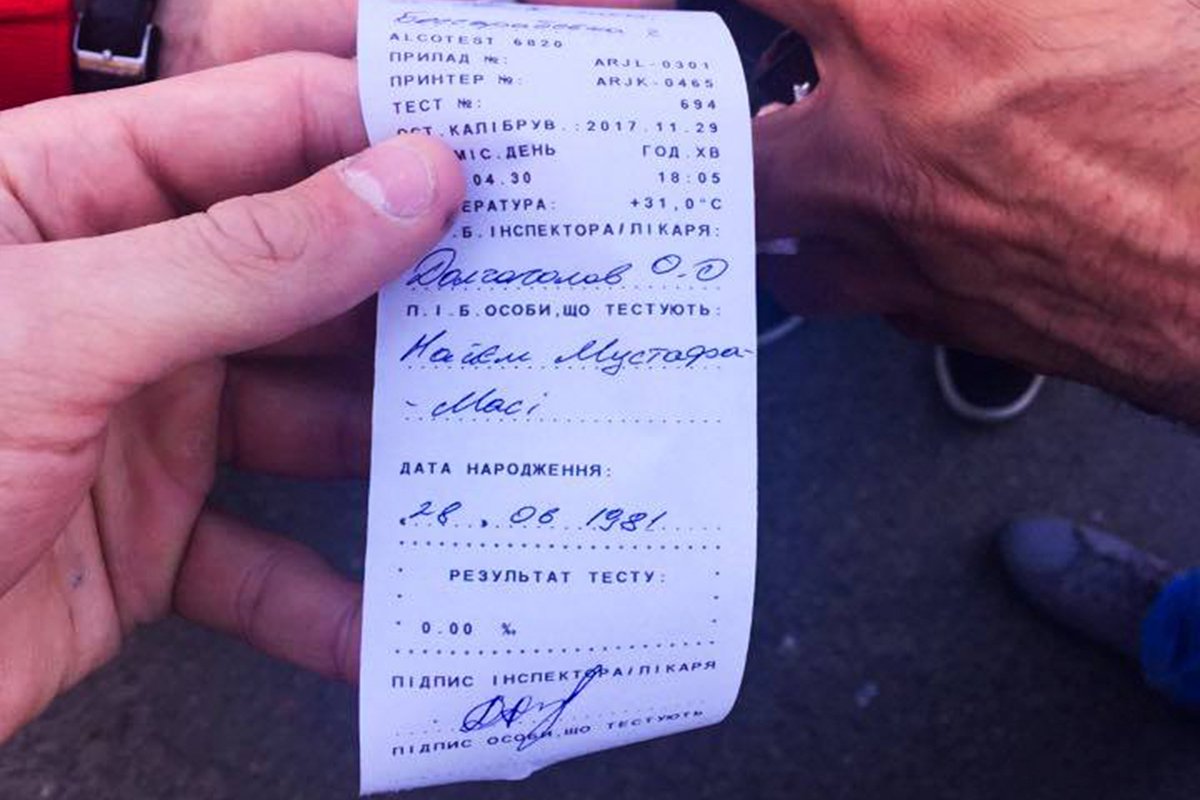 ALCOTEST 6820
ПРИЛАД №: ARJL-0301
ПРИНТЕР №: ARJK-0465
ТЕСТ №: 694
ОСТ.КАЛІБРУВ.:2017.11.29
МІС.ДЕНЬ ГОД.ХВ
04.30 18:05
ЕРАТУРА: +31,0°C
.Б.ІНСПЕКТОРА/ЛІКАРЯ:
Долгополов О.О
П.І.Б.ОСОБИ,ЩО ТЕСТУЮТЬ:
Найєм Мустафа-
- Масі
ДАТА НАРОДЖЕННЯ:
28 . 06 1981
РЕЗУЛЬТАТ ТЕСТУ:
0.00 ‰
ПІДПИС ІНСПЕКТОРА/ЛІКАРЯ
ПІДПИС ОСОБИ,ЩО ТЕСТУЮТЬ